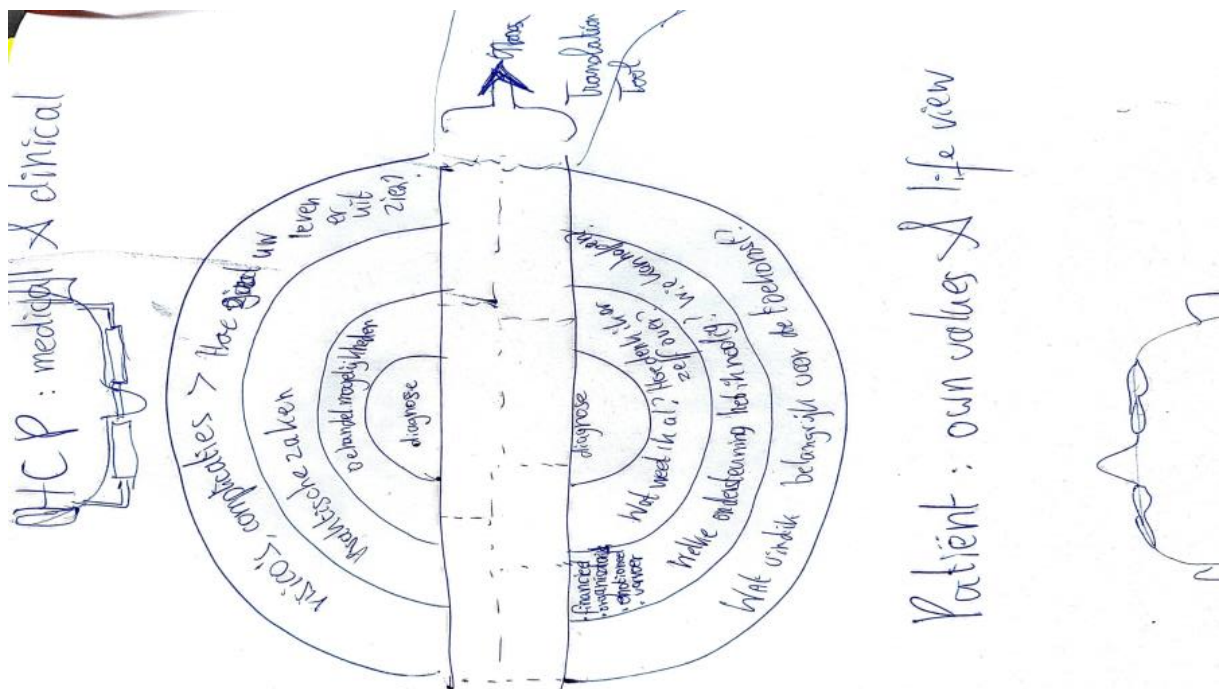 HCP : medical & clinical
Translation
Tool
RISICO'S, complicaties > Hoe uw
leven
er
uit
zien?
Praktische zaken
Behandelmogelijkheden
diagnose
diagnose
Wat weet ik al? Hoe denk ik er
zelf over?
Welke ondersteuning heb ik nodig? wie kan helpen?
· financieel
· emotioneel
· vervoer
Wat vind ik belangrijk voor de toekomst?
Patiënt : own values & life view